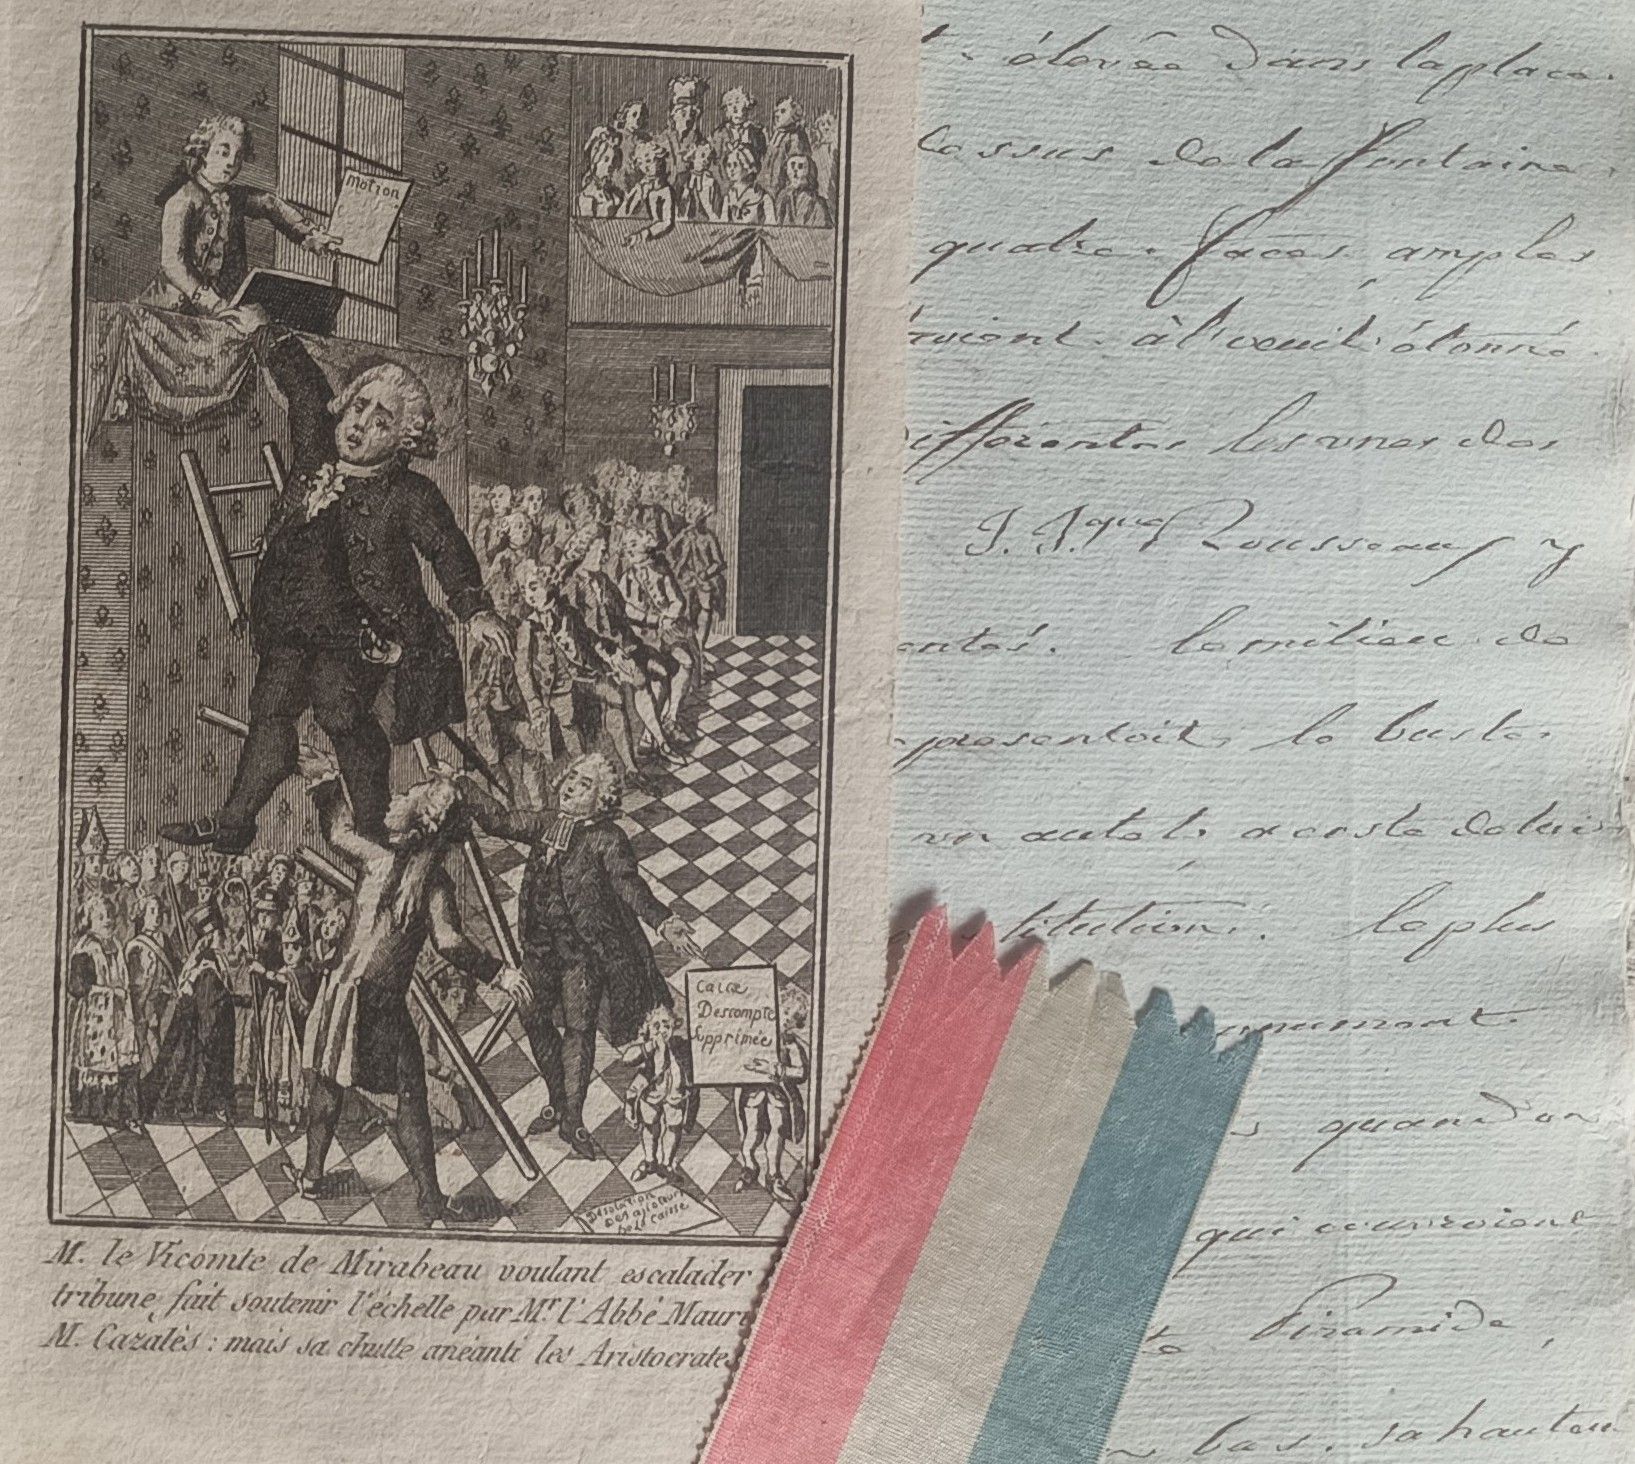 motion
Caisse
Descompte
Supprimée
Desolation
Des ajioteurs
De la Caisse
M. le Vicomte de Mirabeau voulant escalader
tribune, fait soutenir l'échelle par Mr. l'Abbé Maur
M. Cazalès : mais sa chutte anéanti les Aristocrates
élevée dans la place
dessus de la fontaine
quatre faces amples
roient à l'oeuil étonné
differentes les unes des
J. J.ques Rousseau y
entés. le milieu de
presentoit le buste
un autel. a coste de lui
stitution. le plus
monument
s quand on
qui couvroient
te Piramide,
bas. sa hauteur